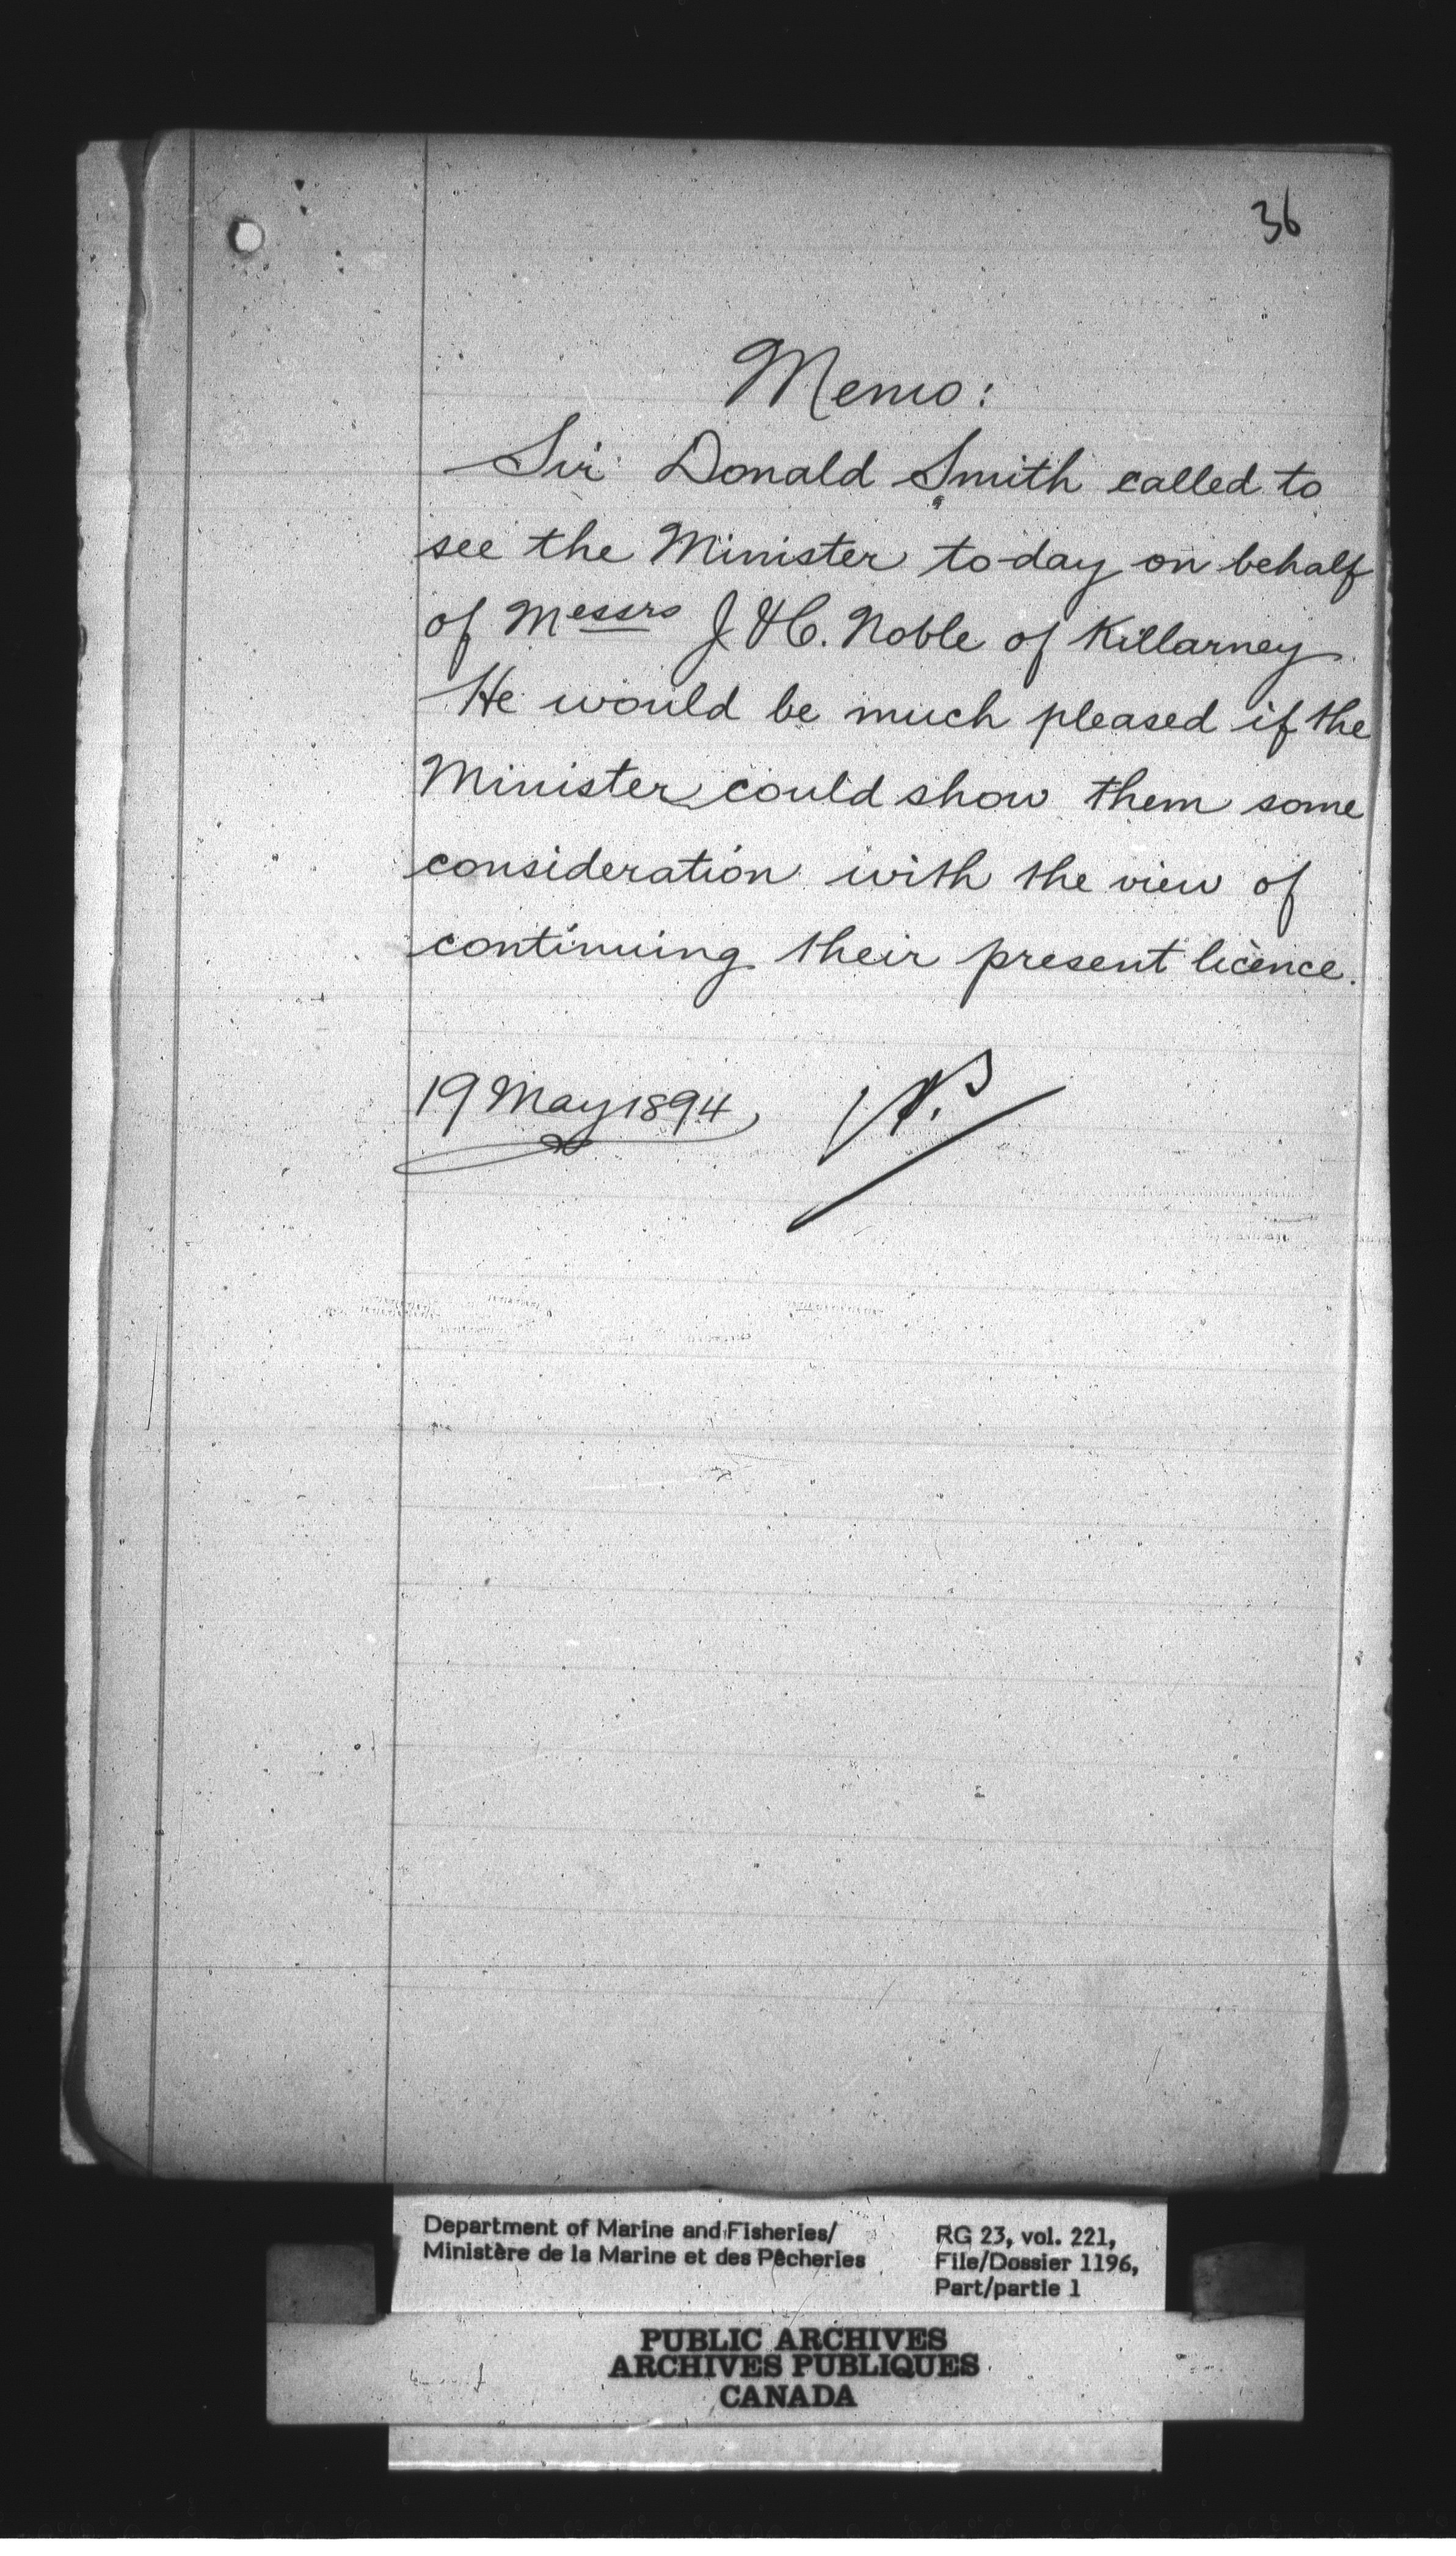 36
Memo:
Sir Donald Smith called to
see the Minister to-day on behalf
of Messrs J & C. Noble of Killarney
He would be much pleased if the
Minister could show them some
consideration with the view of
continuing their present licence.
19 May 1894
Department of Marine and Fisheries/
Ministère de la Marine et des Pêcheries
RG 23, vol. 221,
File/Dossier 1196,
Part/partie 1
PUBLIC ARCHIVES
ARCHIVES PUBLIQUES
CANADA